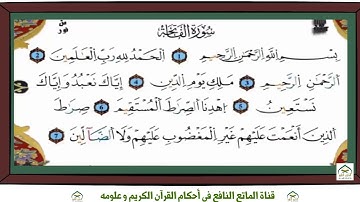 سُورَةُ الْفَاتِحَةِ
بِسْمِ اللَّهِ الرَّحْمَٰنِ الرَّحِيمِ ١ الْحَمْدُ لِلَّهِ رَبِّ الْعَٰلَمِينَ ٢
الرَّحْمَٰنِ الرَّحِيمِ ٣ مَٰلِكِ يَوْمِ الدِّينِ ٤ إِيَّاكَ نَعْبُدُ وَإِيَّاكَ
نَسْتَعِينُ ٥ اهْدِنَا الصِّرَٰطَ الْمُسْتَقِيمَ ٦ صِرَٰطَ
الَّذِينَ أَنْعَمْتَ عَلَيْهِمْ غَيْرِ الْمَغْضُوبِ عَلَيْهِمْ وَلَا الضَّآلِّينَ ٧
قناة الماتع النافع في أحكام القرآن الكريم و علومه